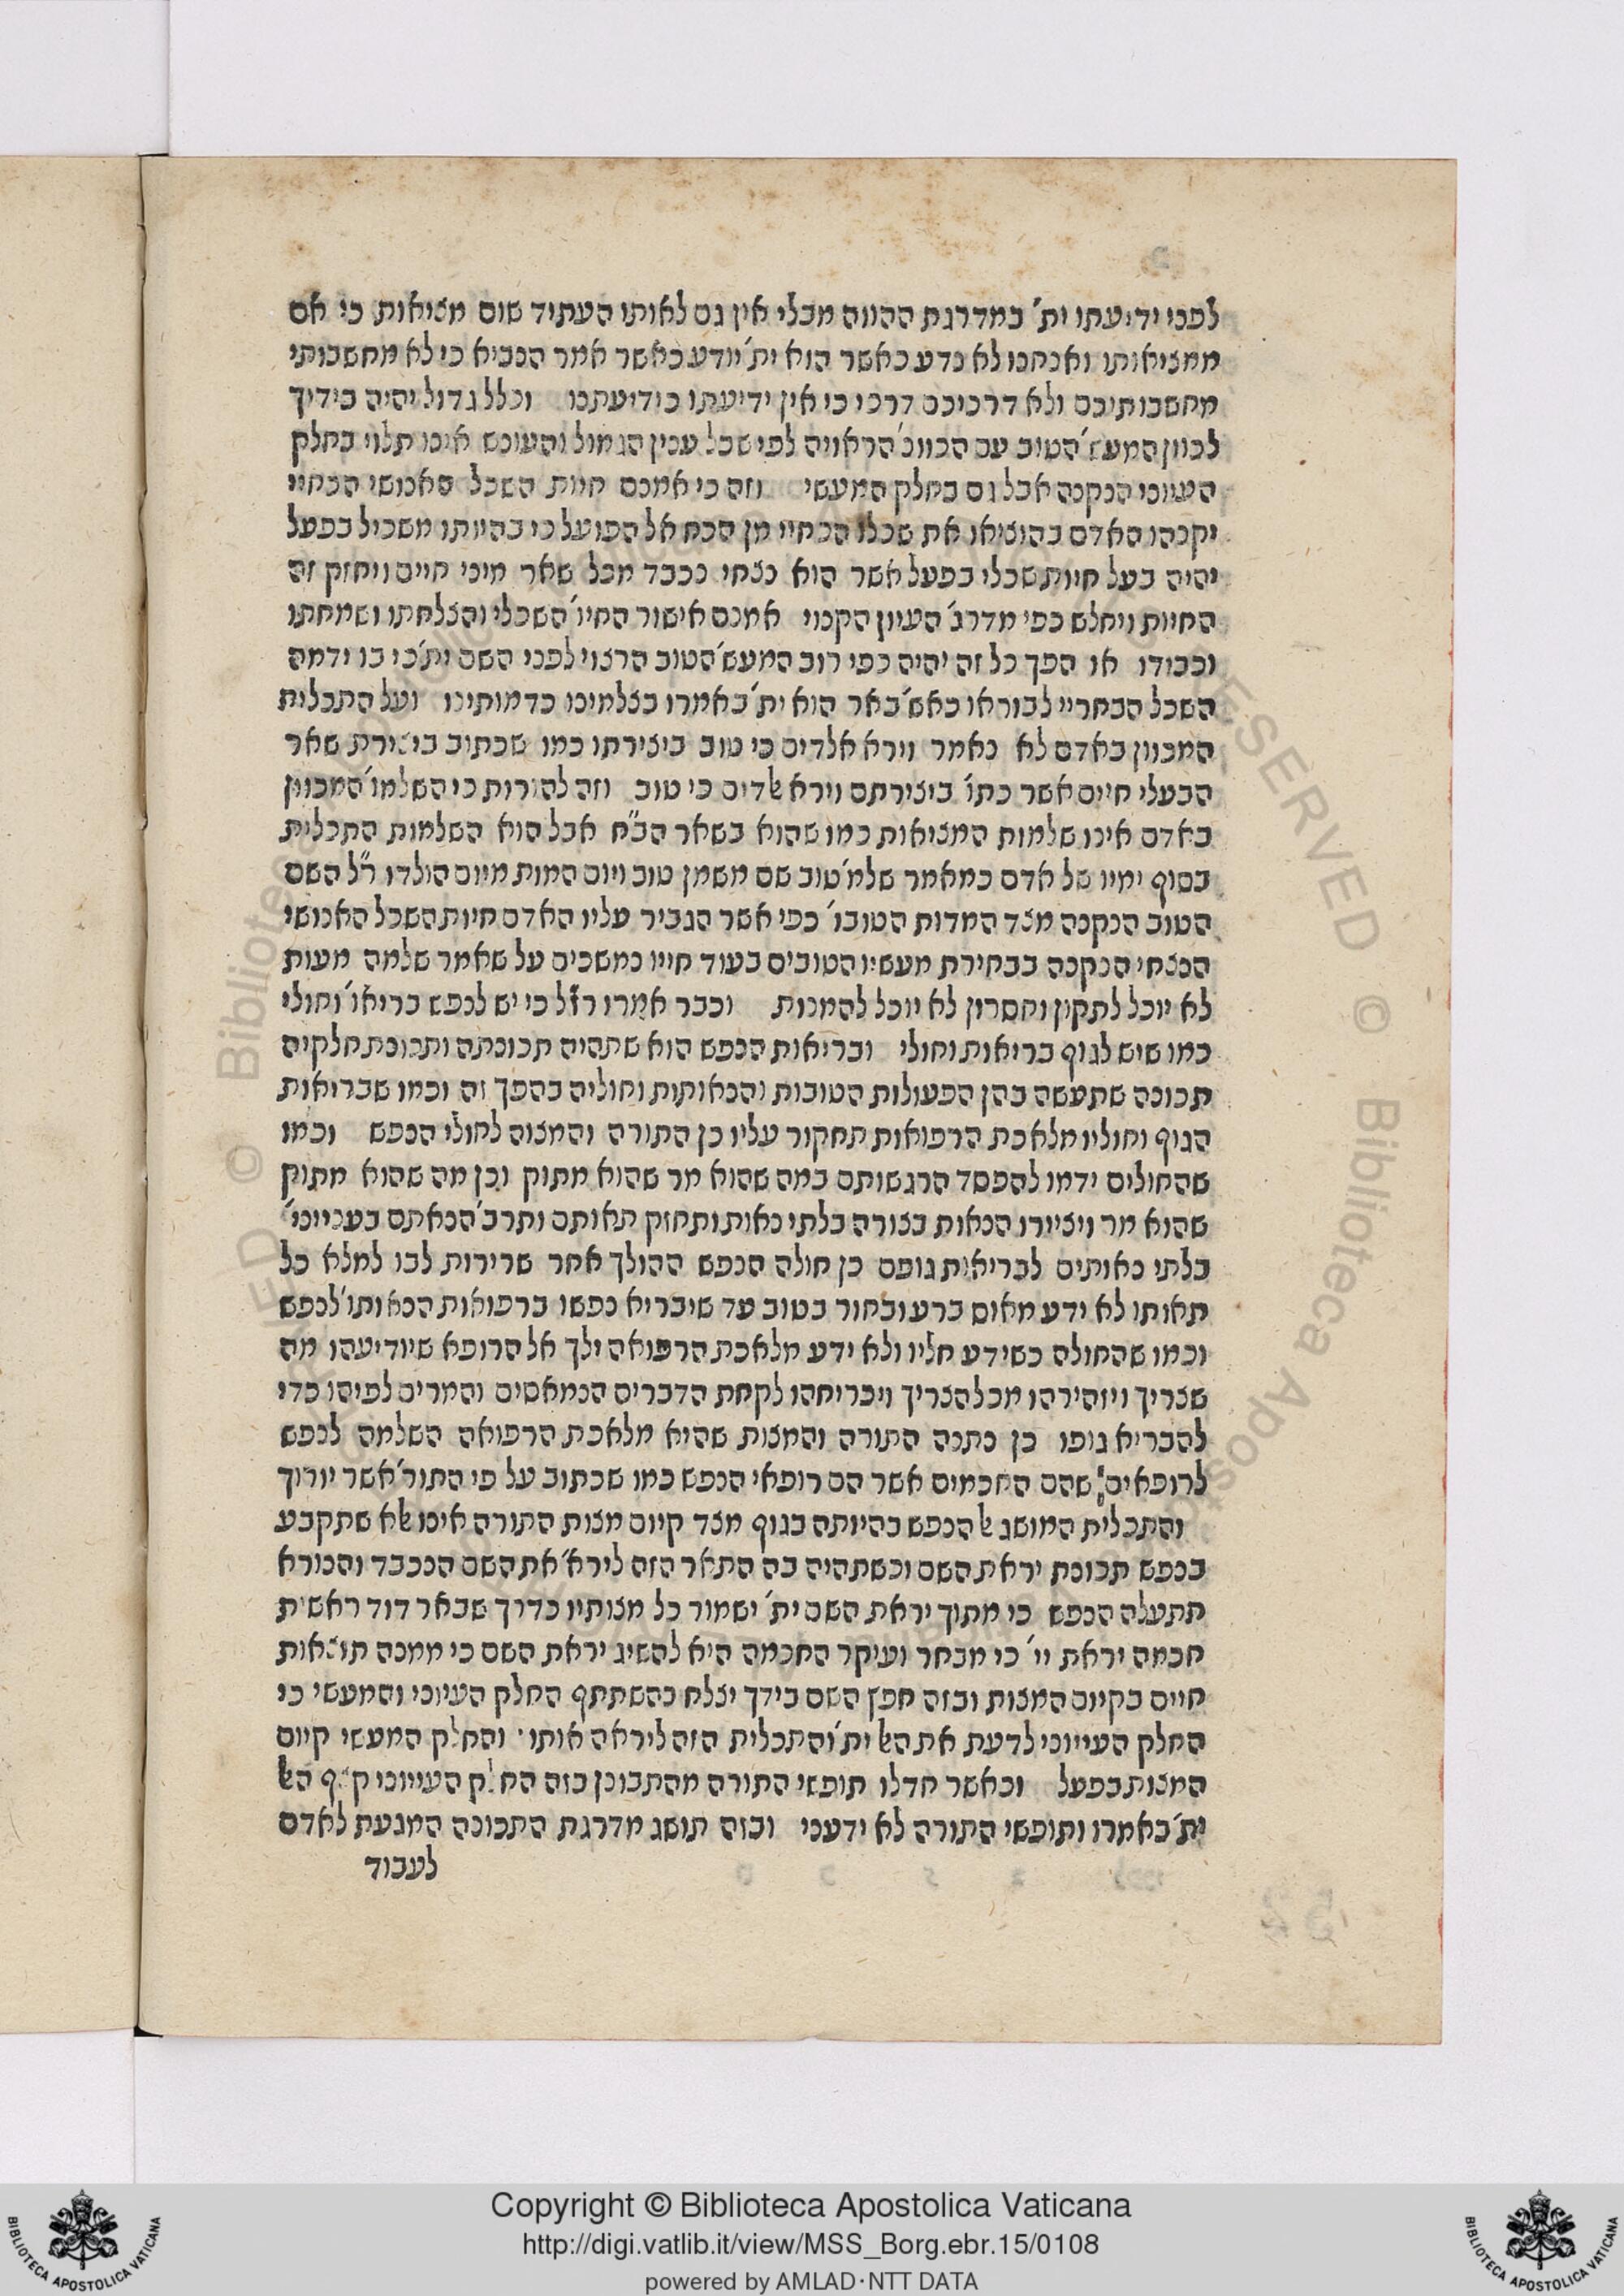 לפני ידיעתו ית' במדרגת ההווה מבלי אין גם לאותו העתיד שום מציאות כי אם
ממציאותו ואנחנו לא נדע כאשר הוא ית' יודע כאשר אמר הנביא כי לא מחשבותי
מחשבותיכם ולא דרכיכם דרכי כי אין ידיעתו כידיעתנו וכלל גדול יהיה בידיך
לכוון המעש' הטוב עם הכוונ' הראויה לפי שכל ענין הגמול והעונש אינו תלוי בחלק
העיוני הנקנה אבל גם בחלק המעשי וזה כי אמנם חיות השכל האנושי הכחיי
יקנהו האדם בהוציאו את שכלו הכחיי מן הכח אל הפועל כי בהיותו משכיל בפעל
יהיה בעל חיות שכלי בפעל אשר הוא נצחי נכבד מכל שאר מיני חיים ויחזק זה
החיות ויחלש כפי מדרג' העיון הקנוי אמנם אישור החיו' השכלי והצלחתו ושמחתו
וכבודו או הפך כל זה יהיה כפי רוב המעש' הטוב הרצוי לפני השם ית' כי בו ידמה
השכל הבחריי לבוראו כאש' באר הוא ית' באמרו בצלמינו כדמותינו ועל התכלית
המכוון באדם לא נאמר וירא אלדים כי טוב ביצירתו כמו שכתוב ביצירת שאר
הבעלי חיים אשר כתו' ביצירתם וירא אלדים כי טוב וזה להורות כי השלמו' המכוון
באדם אינו שלמות המציאות כמו שהוא בשאר הב"ח אבל הוא השלמות התכלית
בסוף ימיו של אדם כמאמר שלמ' טוב שם משמן טוב ויום המות מיום הולדו ר"ל השם
הטוב הנקנה מצד המדות הטובו' כפי אשר הגביר עליו האדם חיות השכל האנושי
הנצחי הנקנה בבחירת מעשיו הטובים בעוד חייו נמשכים על שאמר שלמה מעות
לא יוכל לתקון וחסרון לא יוכל להמנות וכבר אמרו רז"ל כי יש לנפש בריאו' וחולי
כמו שיש לגוף בריאות וחולי ובריאות הנפש הוא שתהיה תכונתה ותכונת חלקיה
תכונה שתעשה בהן הפעולות הטובות והנאותות וחוליה בהפך זה וכמו שבריאות
הגוף וחוליו מלאכת הרפואות תחקור עליו כן התורה והמצוה לחולי הנפש וכמו
שהחולים ידמו להפסד הרגשותם במה שהוא מר שהוא מתוק וכן מה שהוא מתוק
שהוא מר ויציירו הנאות בצורה בלתי נאות ותחזק תאותם ותרב' הנאתם בעניינ'
בלתי נאותים לבריאות גופם כן חולה הנפש ההולך אחר שרירות לבו למלא כל
תאותו לא ידע מאום ברע ובחור בטוב עד שיבריא נפשו ברפואות הנאותו' לנפש
וכמו שהחולה כשידע חליו ולא ידע מלאכת הרפואה ילך אל הרופא שיודיעהו מה
שצריך ויזהירהו מכל הצריך ויכריחהו לקחת הדברים הנמאסים והמרים לפיהו כדי
להבריא גופו כן נתנה התורה והמצות שהיא מלאכת הרפואה השלמה לנפש
לרופאים שהם החכמים אשר הם רופאי הנפש כמו שכתוב על פי התור' אשר יורוך
והתכלית המושג אל הנפש בהיותה בגוף מצד קיום מצות התורה אינו אלא שתקבע
בנפש תכונת יראת השם וכשתהיה בה התאר הזה לירא' את השם הנכבד והנורא
תתעלה הנפש כי מתוך יראת השם ית' ישמור כל מצותיו כדרך שבאר דוד ראשית
חכמה יראת יי' כי מבחר ועיקר החכמה היא להשיג יראת השם כי ממנה תוצאות
חיים בקיום המצות ובזה חפץ השם בידך יצלח בהשתתף החלק העיוני והמעשי כי
החלק העייוני לדעת את האל ית' והתכלית הזה ליראה אותו · והחלק המעשי קיום
המצות בפעל וכאשר חדלו תופשי התורה מהתבונן בזה החלק העייוני קצף האל
ית' באמרו ותופשי התורה לא ידעני ובזה תושג מדרגת התכונה המגעת לאדם
לעבוד
Copyright © Biblioteca Apostolica Vaticana
http://digi.vatlib.it/view/MSS_Borg.ebr.15/0108
powered by AMLAD·NTT DATA
BIBLIOTECA APOSTOLICA VATICANA
BIBLIOTECA APOSTOLICA VATICANA